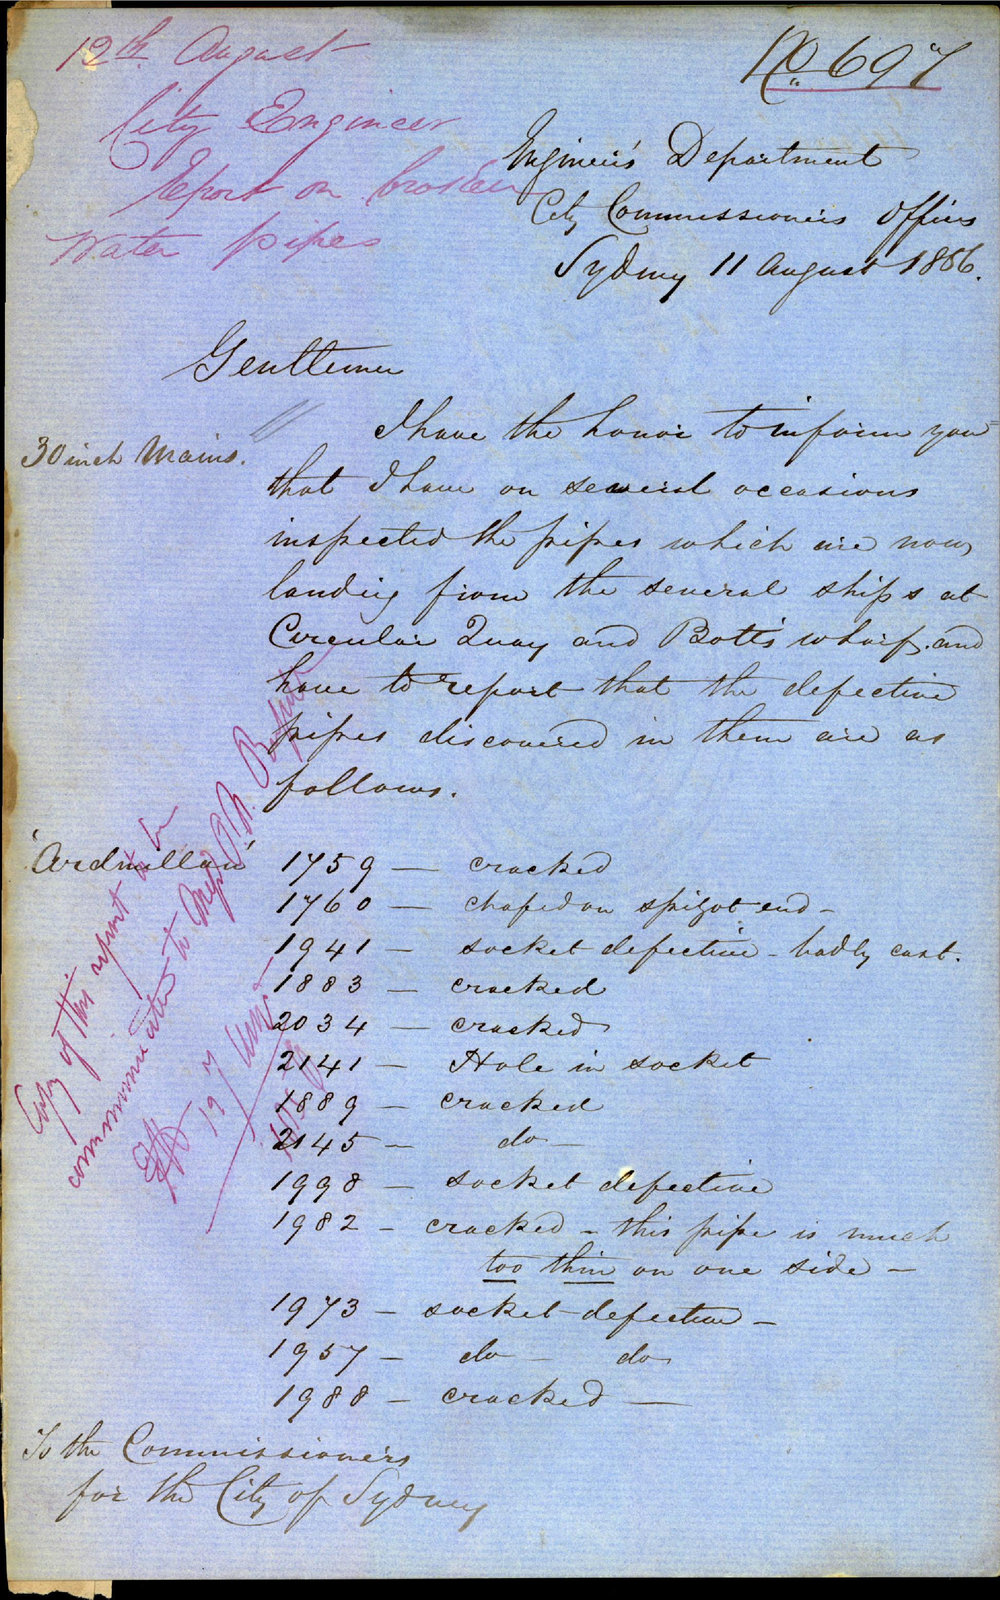 12th August
City Engineer
Report on broken
Water pipes
No 697
Engineer's Department
City Commissioners Offices
Sydney 11 August 1856.
Gentlemen
30 inch Mains.
I have the honor to inform you
that I have on several occasions
inspected the pipes which are now
landing from the several ships at
Circular Quay and Botts wharf. and
have to report that the defective
pipes discovered in them are as
follows.
'Ardmillan'
1759 — cracked
1760 — chafed on spigot end —
1941 — socket defective — badly cast.
1883 — cracked
2034 — cracked
2141 — Hole in socket
1889 — cracked
2145 — do —
1998 — socket defective
1982 — cracked — this pipe is much
too thin on one side —
1973 — socket defective —
1957 — do — do
1988 — cracked —
Copy of this report to be
communicated to Messrs
19
To the Commissioners
for the City of Sydney